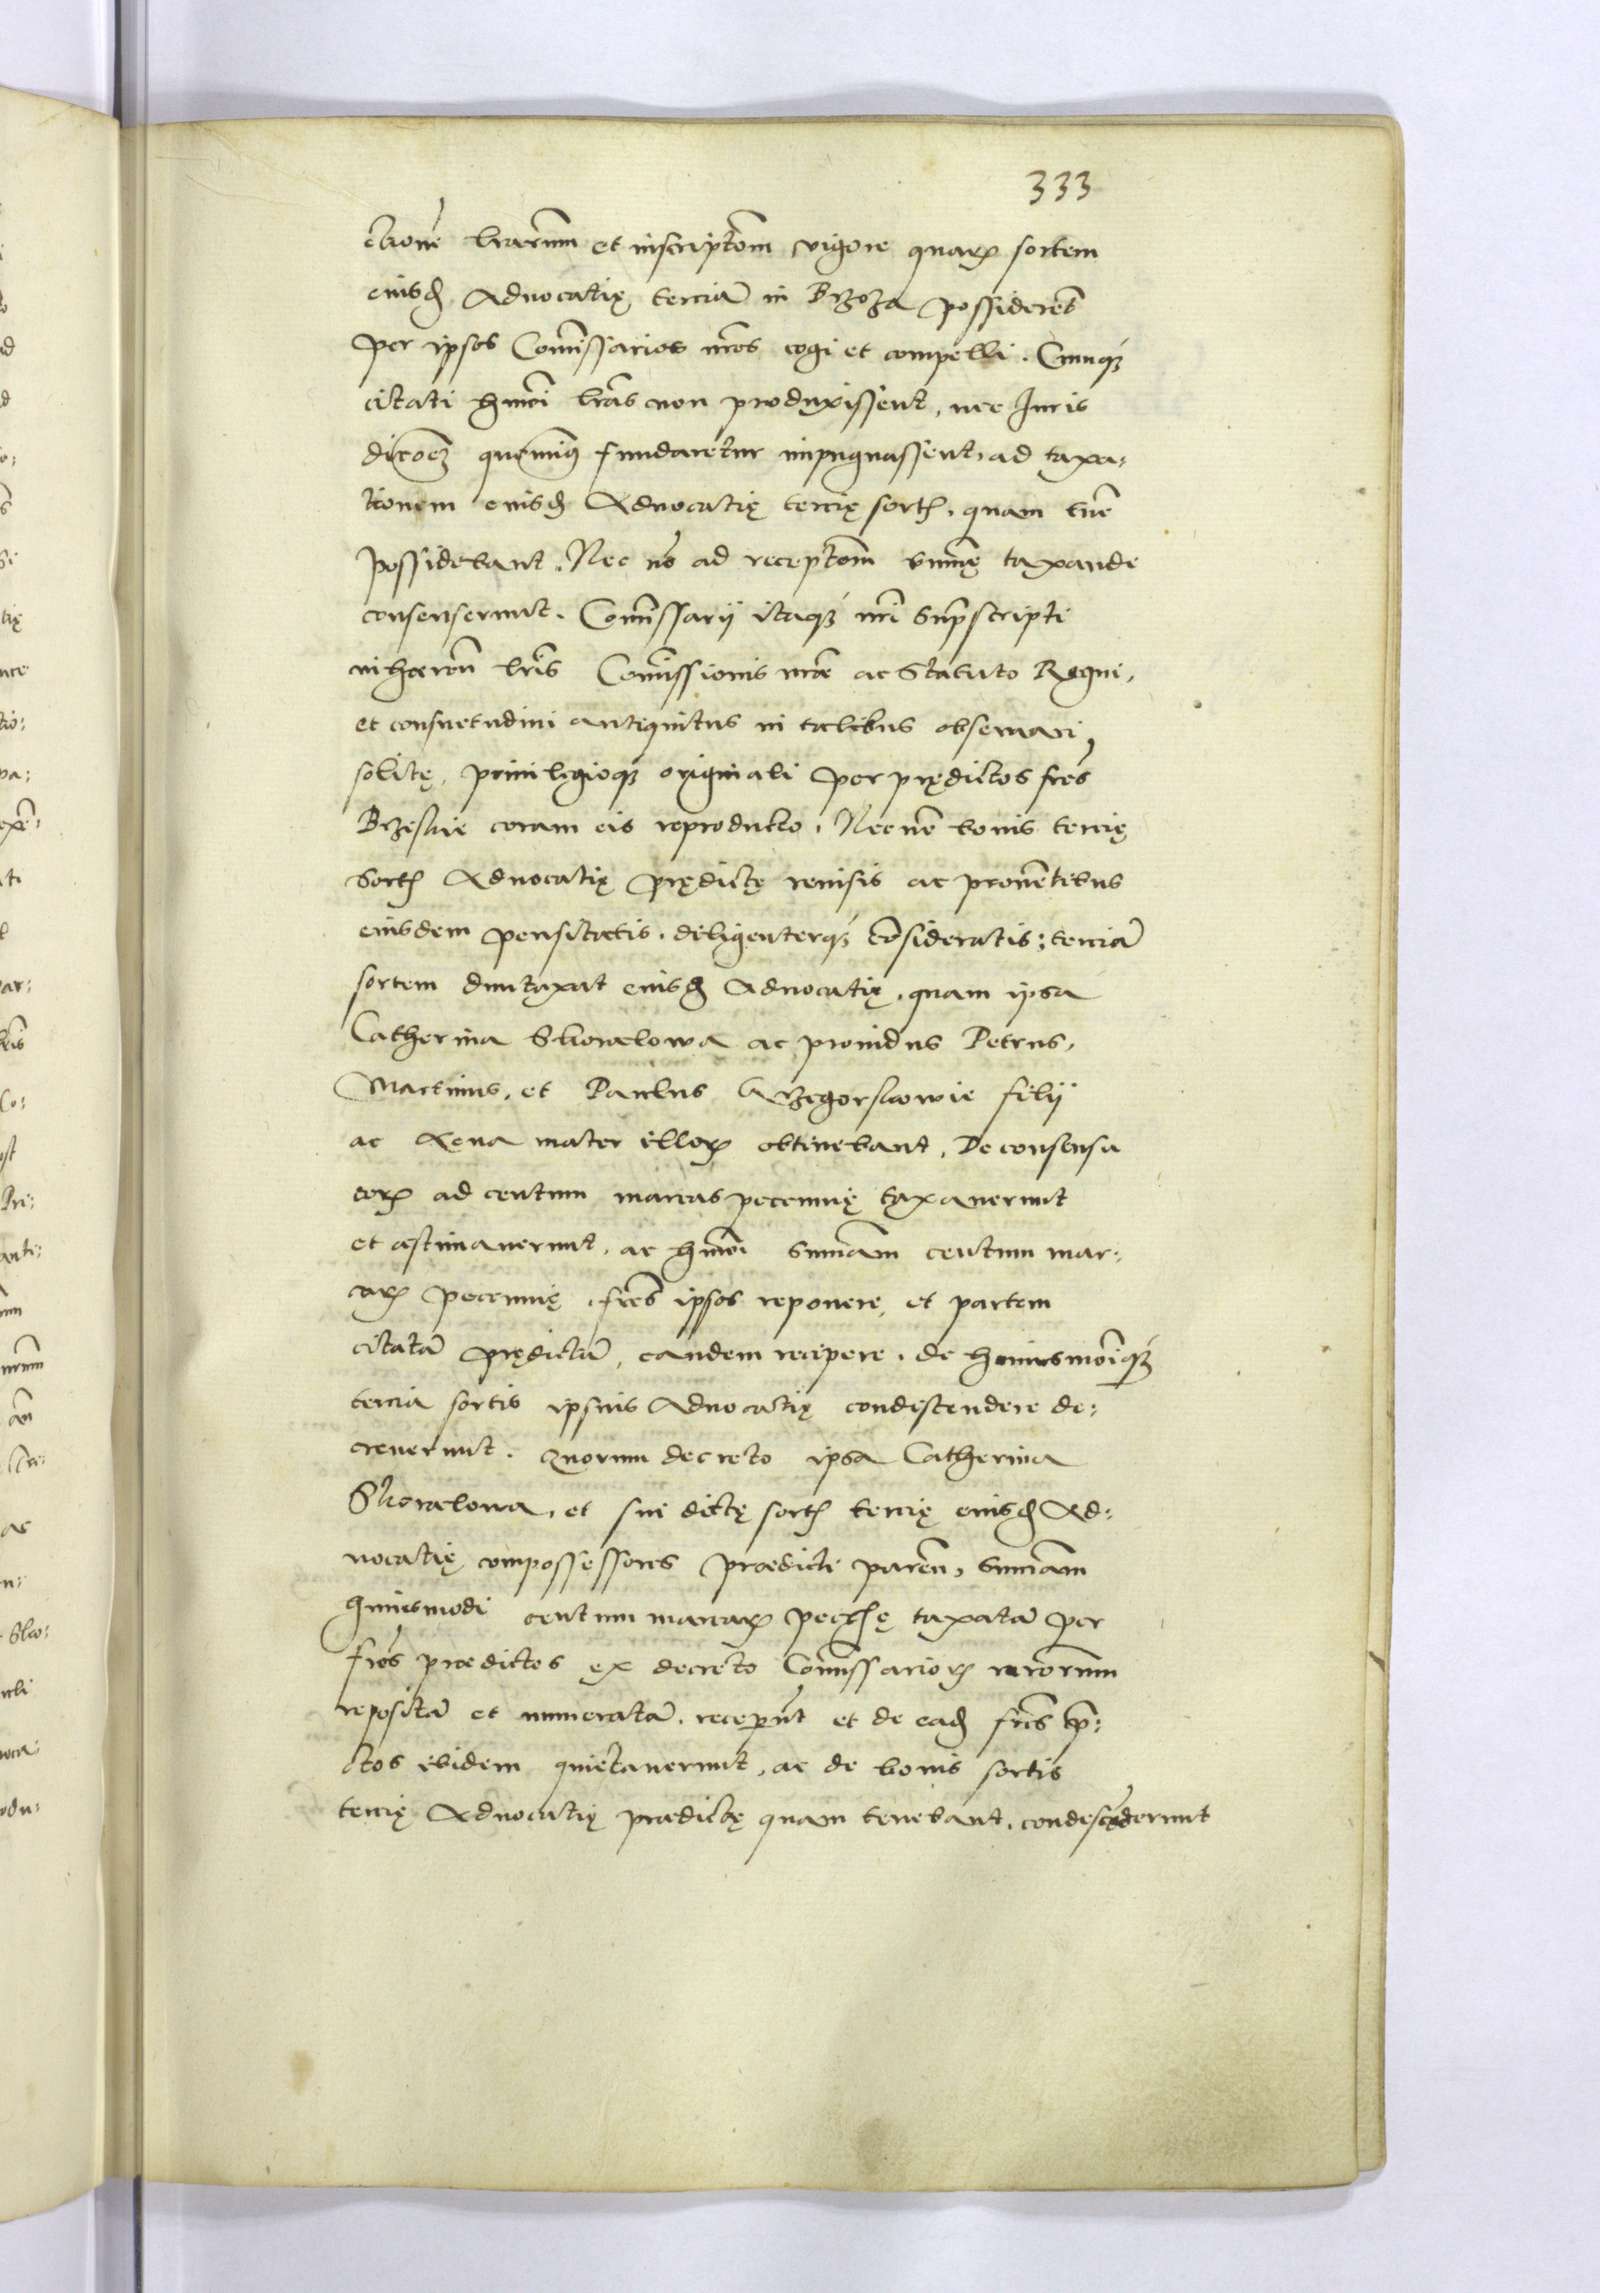 333
ctione lrarum et inscriptom vigore quar sortem
eiusd Aduocatię, terciā in Brzoza possiderēt
per ipsos Comissarios nros cogi et compelli. Cumqz
citati hmoi lras non produxissent, nec Juris
dicoez quominus fundaretur impugnassent, ad taxa:
tionem eiusd Aduocatię tercię sort, quam tūc
possidebant. Nec nō ad receptom summę taxande
consenserunt. Comissarij itaqz nri suprascripti
inhæren lris Comissionis nræ ac Statuto Regni,
et consuetudini antiquitus in talibus obseruari
solitę, priuilegioqz originali per prędictos fres
Brzeskie coram eis reproducto. Nec nō bonis tercię
sort Aduocatię prędictę reuisis ac prouentibus
eiusdem pensitatis, diligenterqz cōsideratis: terciā
sortem duntaxat eiusd Aduocatię, quam ipsa
Catherina Skowelowa ac prouidus Petrus,
Martinus, et Paulus Grzegorskowie filij
ac Anna mater illor obtinebant, De consensu
eor ad centum marcas pecunię taxauerunt
et æstimauerunt, ac hmoi summam centum mar:
car pecunię, fres ipsos reponere, et partem
citatā prędictā, eandem recipere, de huiusmoiqz
tercia sortis ipsius Aduocatię condescendere de:
creuerunt. Quorum decreto ipsa Catherina
Skowelowa, et sui dictę sort tercię eiusd Ad:
uocatię compossessores prædicti paren, summam
huiusmodi centum marcar pecunię taxatā per
fres prædictos ex decreto Comissarior nrorum
repositā et numeratā, receperūt et de ead fres
ctos ibidem quietauerunt, ac de bonis sortis
tercię Aduocatię prædictę quam tenebant, condescēderunt